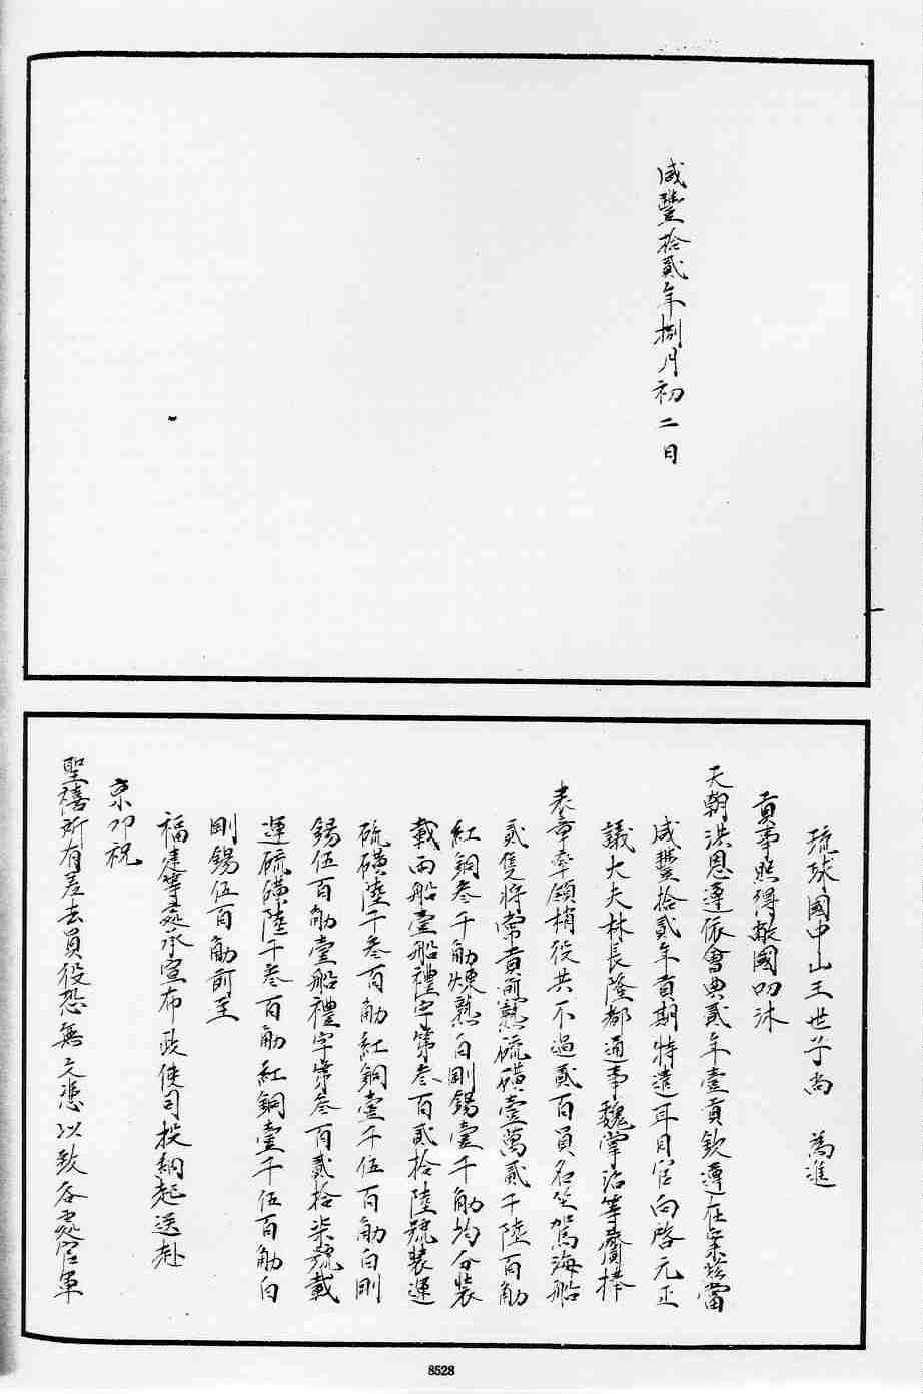 咸豐拾貳年捌月初二日
琉球國中山王世子尚　為進
貢事照得敝國叨沐
天朝洪恩遵依會典貳年壹貢欽遵在案茲當
咸豐拾貳年貢期特遣耳目官向啓元正
議大夫林長隆都通事魏掌治等齎捧
表章率領梢役共不過貳百員名坐駕海船
貳隻將常貢煎熟硫磺壹萬貳千陸百觔
紅銅叁千觔煉熟白剛錫壹千觔均分裝
載兩船壹船禮字第叁百貳拾陸號裝運
硫磺陸千叁百觔紅銅壹千伍百觔白剛
錫伍百觔壹船禮字第叁百貳拾柒號載
運硫磺陸千叁百觔紅銅壹千伍百觔白
剛錫伍百觔前至
福建等處承宣布政使司投納起送赴
京叩祝
聖禧所有差去員役恐無文憑以致各處官軍
8528